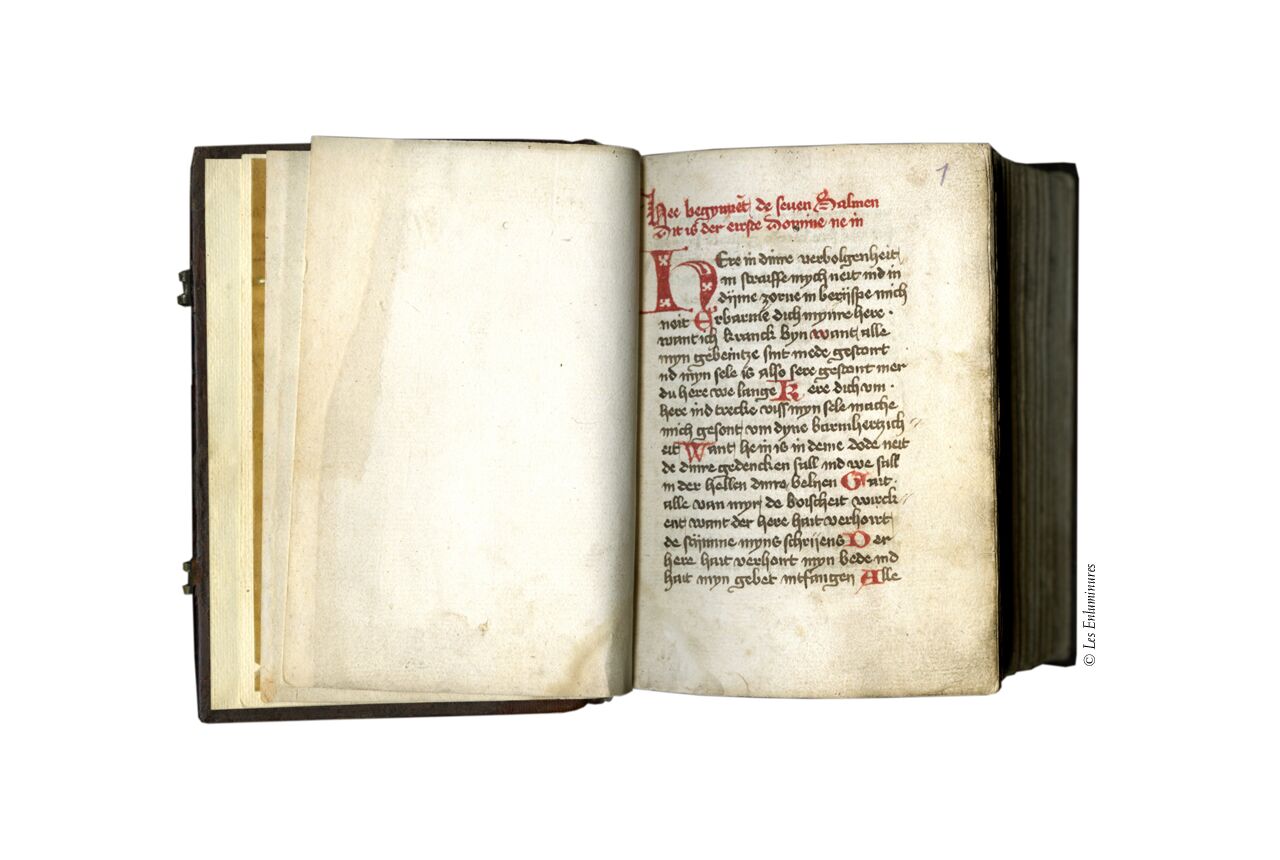 1
Hee begynnet de seuen Salmen
Dit is der eirste Domine ne in
HEre in dinre verbolgenheit
in straiffe mych neit ind in
dijme zorne in berijspe mich
neit Erbarme dich mynre here ·
want ich kranck byn want alle
myn gebeintze sint mede gestoirt
nd myn sele is also sere gestoirt mer
du here we lange Kere dich vm ·
here ind trecke viss myn sele mache
mich gesont vm dyne barmhertzich
eit Want he in is in deme dode neit
de dinre gedencken sall ind we sall
in der hellen dinre belijen Gait ·
alle van myr de boisheit wirck
ent want der here hait verhoirt
de stijmme myns schrijens Der
here hait verhoirt myn bede ind
hait myn gebet intfangen Alle
© Les Enluminures